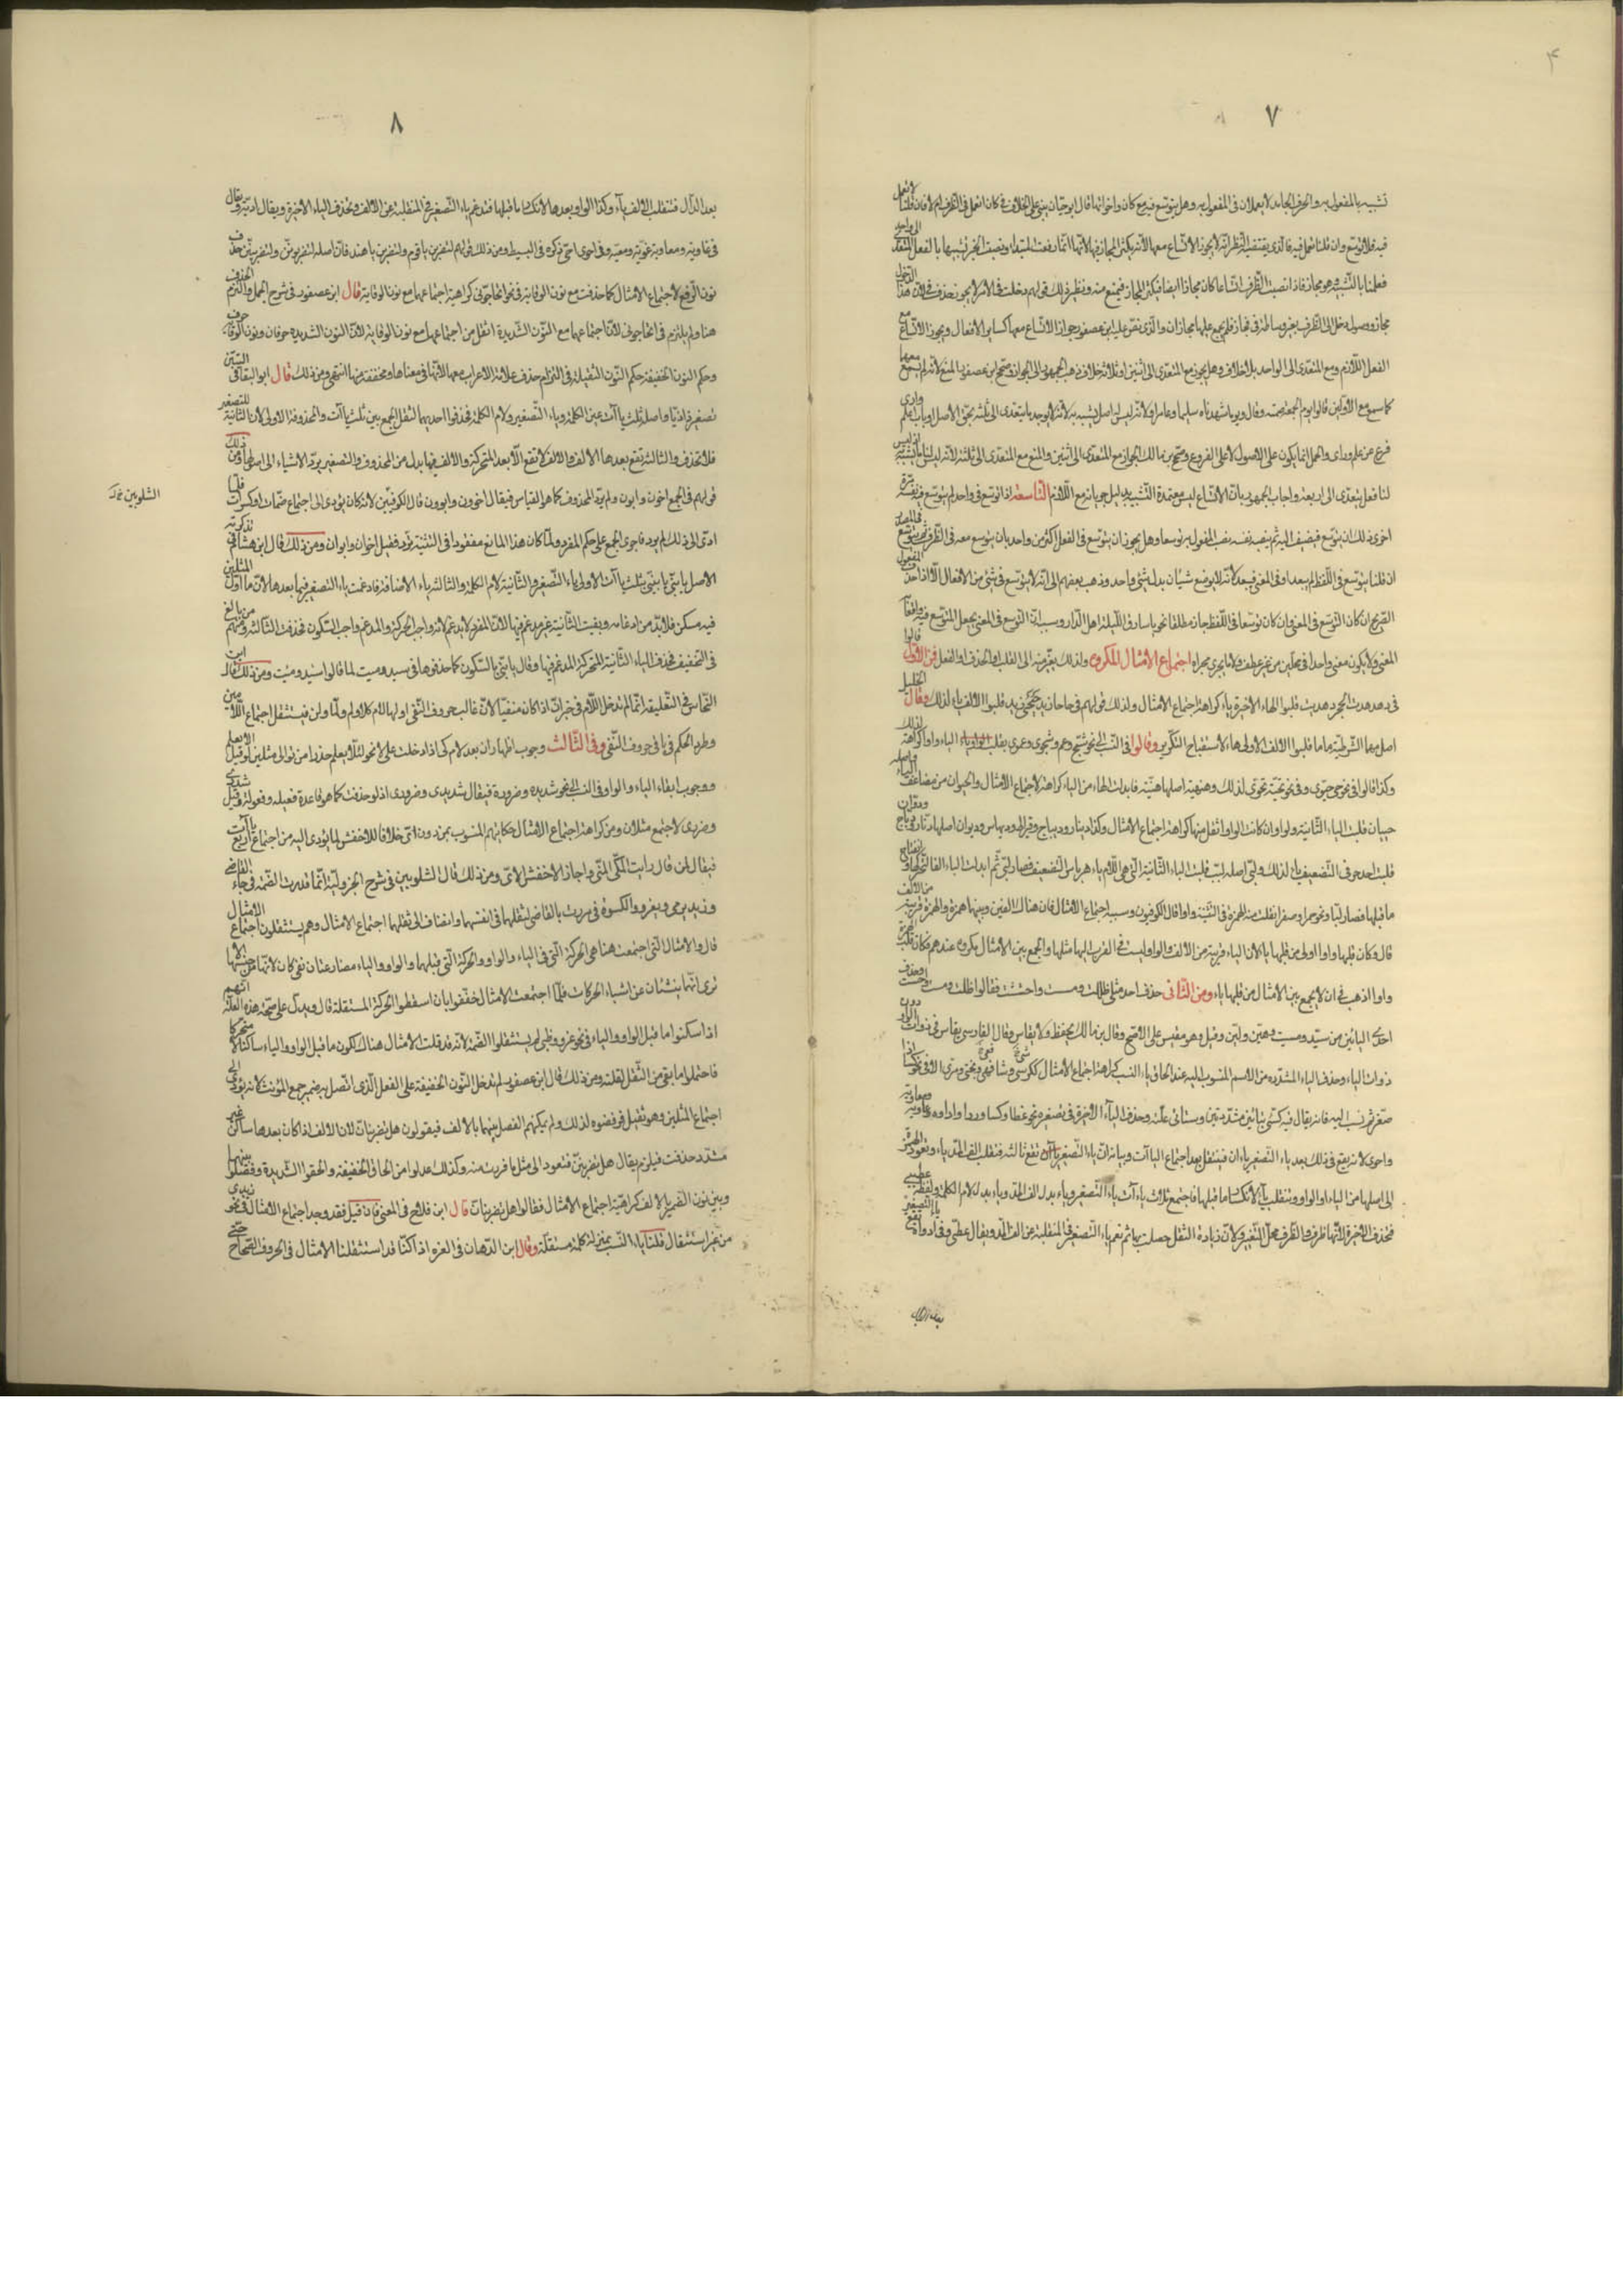 ٤
٧
تشبيه بالمفعول به والحرف الجامد لا يعملان فى المفعول به وهل يتوسع فيه مع كان واخواتها قال ابو حيان يبنى على الخلاف فى كان اتعمل فى الظرف ام لا فان قلنا لا تعمل
فيه فلا يتوسع وان قلنا تعمل فيه فالذى يقتضيه النظر انه لا يجوز الاتساع معها لانه يكثر المجاز فيها لانها انما رفعت المبتدا ونصبت الخبر تشبيها بالفعل المتعدى الى واحد
فعملها بالتشبيه وهو مجاز فاذا نصبت الظرف اتساعا كان مجازا ايضا فيكثر المجاز فيمنع منه ونظير ذلك قولهم دخلت فى الامر لا يجوز حذف فى لان هذا الدخول
مجاز ووصول دخل الى الظرف بغير وساطة فى مجاز فلم يجمع عليها مجازان والذى نص عليه ابن عصفور جواز الاتساع معها كسائر الافعال ويجوز الاتساع مع
الفعل اللازم ومع المتعدى الى الواحد بلا خلاف وهل يجوز مع المتعدى الى اثنين او ثلاثة خلاف ذهب الجمهور الى الجواز وصحح ابن عصفور المنع لانه لم يسمع معهما
كما سمع مع الاولين قالوا يوم الجمعة صمته وقال ويوما شهدناه سليما وعامرا ولانه ليس له اصل يشبه به لانه لا يوجد ما يتعدى الى ثلثة بحق الاصل وباب اعلم وارى
فرع من علم وراى والحمل انما يكون على الاصول لا على الفروع وصحح ابن مالك الجواز مع المتعدى الى اثنين والمنع مع المتعدى الى ثلثة لانه ليس لنا ما يشبه به اذ ليس
لنا فعل يتعدى الى اربعة واجاب الجمهور بان الاتساع ليس معتمدة التشبيه بدليل جريانه مع اللازم التاسعة اذا توسع فى واحد لم يتوسع فيه نفسه مرة
اخرى ذلك ان يتوسع فيضيف اليه ثم ينصبه نصب المفعول به توسعا وهل يجوز ان يتوسع فى الفعل اكثر من واحد بان يتوسع معه فى الظرف ثم يتوسع فى المصدر
ان قلنا يتوسع فى اللفظ لم يبعد او فى المعنى فيبعد لانه لا يوضع شيئان بدل شئ واحد وذهب بعضهم الى انه لا يتوسع فى شئ من الافعال الا اذا حذف المفعول
الصريح ان كان التوسع فى المعنى وان كان توسعا فى اللفظ جاز مطلقا نحو يا سارق الليلة اهل الدار وسببه ان التوسع فى المعنى يجعل المتوسع فيه واقعا
المعنى ولا يكون معنى واحدا فى محلين من غير عطف ولا ما يجرى مجراه اجتماع الامثال المكروه ولذلك يفر منه الى القلب والحذف او الفصل فمن الاول قالوا
فى دهدهت الحجر دهديت قلبوا الهاء الاخيرة ياء كراهة اجتماع الامثال ولذلك قولهم فى حاحا زيد حيحى زيد قلبوا الالف ياء لذلك وقال الخليل
اصل مهما الشرطية ماما قلبوا الالف الاولى هاء لاستقباح التكرير وقالوا فى النسب الى نحو شج وعم شجوى وعموى بقلب الياء واوا كراهة لذلك
وكذا قالوا فى نحو حى حيوى وفى نحو تحية تحوى لذلك وهنيهة اصلها هنيية فابدلت الهاء من الياء كراهة لاجتماع الامثال والحيوان من مضاعف الياء واصله
حييان قلبت الياء الثانية واوا وان كانت الواو اثقل منها كراهة اجتماع الامثال وكذا دينار وديباج وقيراط وديماس وديوان اصلها دنار ودباج ودقران
قلبت احد حرفى التضعيف ياء لذلك ولبى اصله لبب قلبت الباء الثانية التى هى اللام ياء هربا من التضعيف فصار لبى ثم ابدلت الياء الفا لتحركها وانفتاح
ما قبلها فصار لبا ونحو حمراء وصفراء تقلب منه الهمزة فى التثنية واوا قال الكوفيون وسببه اجتماع الامثال فان هناك الفين وبينهما همزة والهمزة قريبة من الالف
قال وكان قلبها واوا اولى من قلبها ياء لان الياء قريبة من الالف والواو ليست فى القرب اليها مثلها والجمع بين الامثال مكروه عندهم فكان قلبها الهمزة
واوا اذهب فى ان لا يجمع بين الامثال من قلبها ياء ومن الثانى حذف احد مثلى ظللت ومسست واحسست فقالوا ظلت ومست واحست وحذف
احدى اليائين من سيد وميت وهين ولين وقيل وهو مقيس على الاصح وقال ابن مالك يحفظ ولا يقاس وقال الفارسى يقاس فى ذوات الواو دون
ذوات الياء وحذف الياء المشددة من الاسم المنسوب اليه عند الحاق ياء النسب كراهة اجتماع الامثال ككرسى وشافعى وبختى ومرمى الا فى نحو كساء اذا
صغر ثم نسب اليه فانه يقال فيه كسيى بيائين مشددتين وستاتى علته وحذف الياء الاخيرة فى تصغير نحو غطاء وكساء ورداء واداوة وغاوية ومعاوية
واحوى لانه يقع فى ذلك بعد ياء التصغير ياءان فيثقل بعد اجتماع الياآت وبيانه ان ياء التصغير تقع ثالثة فتقلب الف المد ياء وتعود الهمزة
الى اصلها من الياء او الواو وتنقلب ياء لانكسار ما قبلها فاجتمع ثلاث ياآت ياء التصغير وياء بدل الف المد وياء بدل لام الكلمة ولفظه عطيى
فحذف الاخيرة لانها طرف والطرف محل التغيير ولان زيادة الثقل حصلت بها ثم تدغم ياء التصغير فى المنقلبة عن الف المد ويقال عطى وفى اداوة تقع ياء التصغير
بعد الالف
٨
بعد الدال فتنقلب الالف ياء وكذا الواو بعدها لانكسار ما قبلها فتدغم ياء التصغير فى المنقلبة عن الالف وتحذف الياء الاخيرة ويقال ادية ويقال
فى غاوية ومعاوية غوية ومعية وفى احوى احى ذكره فى البسيط ومن ذلك قولهم لتضربن يا قوم ولتضربن يا هند فان اصله لتضربونن ولتضربينن حذف
نون الرفع لاجتماع الامثال كما حذفت مع نون الوقاية فى نحو اتحاجونى كراهة اجتماعها مع نون الوقاية قال ابن عصفور فى شرح الجمل والتزم الحذف
هنا ولم يلتزم فى اتحاجونى لان اجتماعها مع النون الشديدة اثقل من اجتماعها مع نون الوقاية لان النون الشديدة حرفان ونون الوقاية حرف
وحكم النون الخفيفة حكم النون الثقيلة فى التزام حذف علامة الاعراب معها لانها فى معناها ومخففة منها انتهى ومن ذلك قال ابو البقا فى التبيين
تصغير ذا ذيا واصله ثلث ياآت عين الكلمة وياء التصغير ولام الكلمة فحذفوا احديها لثقل الجمع بين ثلث ياآت والمحذوفة الاولى لان الثانية للتصغير
فلا تحذف والثالثة تقع بعدها الالف والالف لا تقع الا بعد المتحركة والالف فيها بدل من المحذوف والتصغير يرد الاشياء الى اصولها ومن ذلك
قولهم فى الجمع اخون وابون ولم يرد المحذوف كما هو القياس فيقال اخوون وابوون قال الكوفيين لانه كان يؤدى الى اجتماع ضمات او كسرات فلما
ادى الى ذلك لم يرد فاجرى الجمع على حكم المفرد ولما كان هذا المانع مفقودا فى التثنية يرد فقيل اخوان وابوان ومن ذلك قال ابن هشام فى تذكرته
الاصل يا بنى يا بنيى بثلث ياآت الاولى ياء التصغير والثانية لام الكلمة والثالثة ياء الاضافة فادغمت ياء التصغير فيما بعدها لان ما اول المثلين
فيه مسكن فلا بد من ادغامه وبقيت الثانية غير مدغم فيها لان المدغم لا يدغم لانه واجب الحركة والمدغم واجب السكون فحذفت الثالثة ومنهم من بالغ
فى التخفيف فحذف الياء الثانية المتحركة المدغم فيها وقال يا بنى بالسكون كما حذفوها فى سيد وميت لما قالوا سيد وميت ومن ذلك قال ابن
النحاس فى التعليقة انما لم تدخل اللام فى خبر ان اذا كان منفيا لان غالب حروف النفى اولها لام كلا ولم ولما ولن فيستثقل اجتماع اللامين
وطرد الحكم فى باقى حروف النفى وفى الثالث وجوب اظهار ان بعد لام كى اذا دخلت على لا نحو لئلا يعلم حذرا من توالى مثلين لو قيل لالا يعلم
ووجوب ابقاء الياء والواو فى النسب الى نحو شديدة وضرورة فيقال شديدى وضرورى اذ لو حذفت كما هو قاعدة فعيلة وفعولة وقيل شددى
وضررى لاجتمع مثلان ومن كراهة اجتماع الامثال حكايتهم المنسوب بمن دون اى خلافا للاخفش لما يؤدى اليه من اجتماع اربع ياآت
فيقال لمن قال رايت المكى المنى واجاز الاخفش الايى ومن ذلك قال الشلوبين فى شرح الجزولية انما قدرت الضمة فى جاء القاضى
وزيد يرمى ويغزو والكسرة فى مررت بالقاضى لثقلهما فى انفسهما وانضاف الى ثقلهما اجتماع الامثال وهم يستثقلون اجتماع الامثال
قال والامثال التى اجتمعت هنا هى الحركة التى فى الياء والواو والحركة التى قبلهما والواو والياء مضارعتان نفى كان لانهما من جنسها الا
ترى انهما ينشئان عن اشباع الحركات فلما اجتمعت الامثال خففوا بان اسقطوا الحركة المستثقلة قال ويدل على صحة هذه العلة انهم
اذا سكنوا ما قبل الواو والياء فى نحو غزو وظبى لم يستثقلوا الضمة لانه قد قلت الامثال هناك لكون ما قبل الواو والياء ساكنا لا متحركا
فاحتملوا ما بقى من الثقل لقلته ومن ذلك قال ابن عصفور لم تدخل النون الخفيفة على الفعل الذى اتصل به ضمير جمع المؤنث لانه يؤدى الى
اجتماع المثلين وهو ثقيل فرفضوه لذلك ولم يمكنهم الفصل بينهما بالالف فيقولون هل يضربنان لان الالف اذا كان بعدها ساكن غير
مشدد حذفت فيلزم ان يقال هل يضربنن فتعود الى مثل ما فررت منه وكذلك عدلوا من الحاق الخفيفة والحقوا الشديدة وفصلوا بينها
وبين نون الضمير بالالف كراهية اجتماع الامثال فقالوا هل يضربنان قال ابن فلاح فى المغنى فان قيل فقد وجد اجتماع الامثال فى نحو زيدى
من غير استثقال قلنا ياء النسب بمنزلة كلمة مستقلة وقال ابن الدهان فى الغرة اذا كنا قد استثقلنا الامثال فى الحروف الصحاح حتى
الشلوبين خ ل